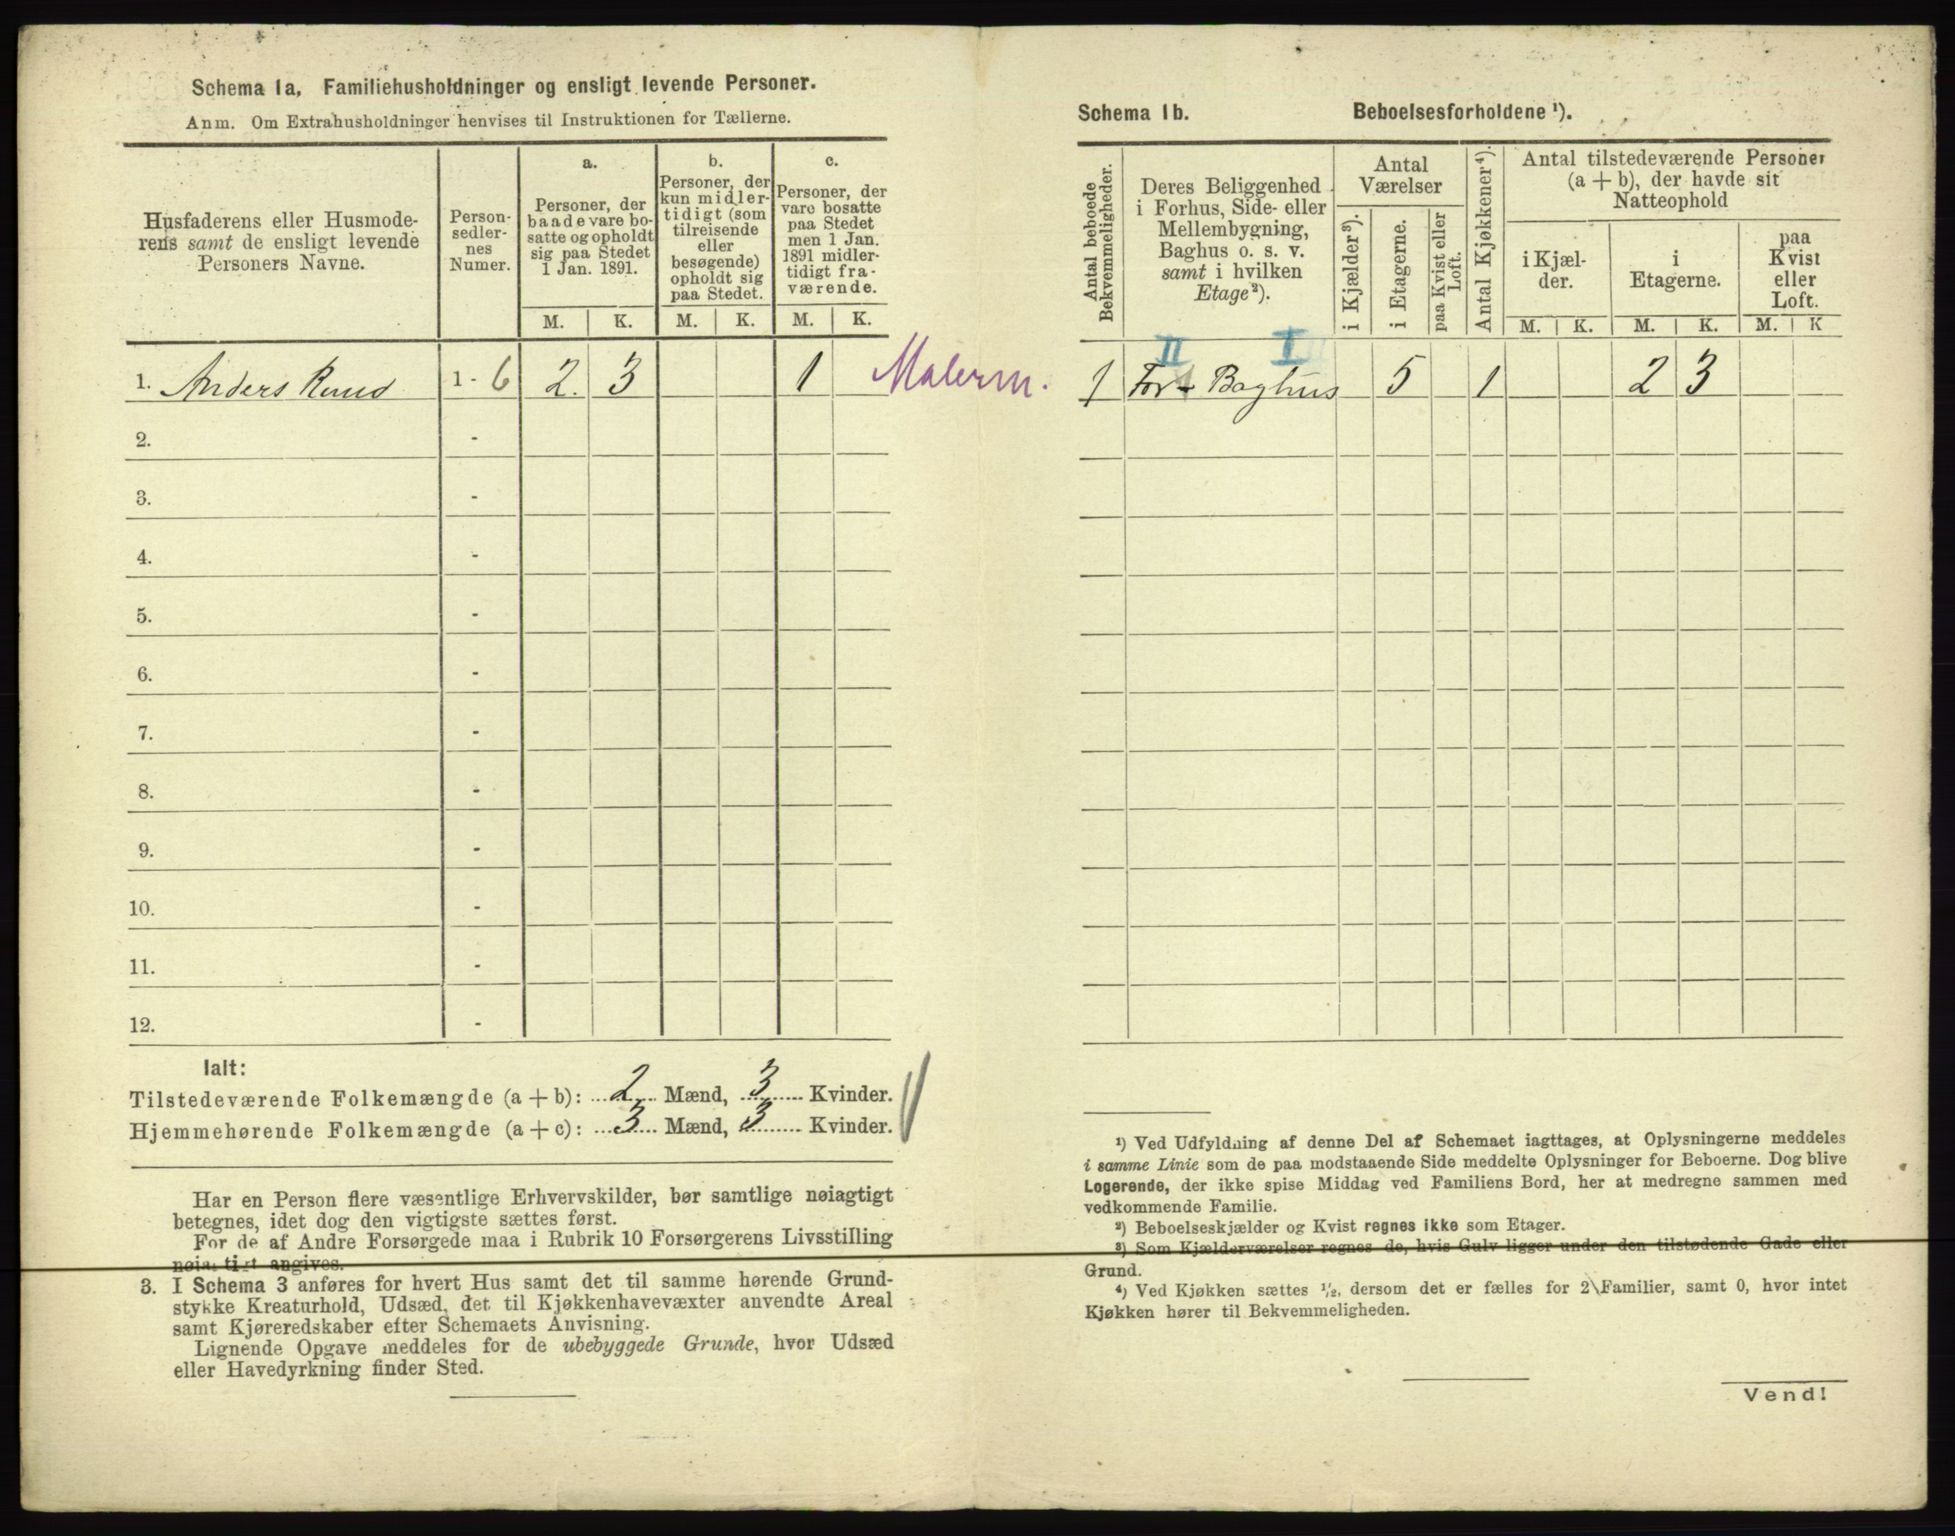 Schema 1a. Familiehusholdninger og ensligt levende Personer.
Anm. Om Extrahusholdninger henvises til Instruktionen for Tællerne.
Husfaderens eller Husmode-
rens samt de ensligt levende
Personers Navne.
Person-
sedler-
nes
Numer.
a.
Personer, der
baade vare bo-
satte og opholdt
sig paa Stedet
1 Jan. 1891.
M. K.
b.
Personer, der
kun midler-
tidigt (som
tilreisende
eller
besøgende)
opholdt sig
paa Stedet.
M. K.
c.
Personer, der
vare bosatte
paa Stedet
men 1 Jan.
1891 midler-
tidigt fra-
værende.
M. K.
1. Anders Ruud 1 - 6 2. 3 1 Malerm.
2. -
3. -
4. -
5. -
6. -
7. -
8. -
9. -
10. -
11. -
12. -
Ialt:
Tilstedeværende Folkemængde (a + b): 2 Mænd, 3 Kvinder.
Hjemmehørende Folkemængde (a + c): 3 Mænd, 3 Kvinder.
Har en Person flere væsentlige Erhvervskilder, bør samtlige nøiagtigt
betegnes, idet dog den vigtigste sættes først.
For de af Andre Forsørgede maa i Rubrik 10 Forsørgerens Livsstilling
nøiagtigt angives.
3. I Schema 3 anføres for hvert Hus samt det til samme hørende Grund-
stykke Kreaturhold, Udsæd, det til Kjøkkenhavevæxter anvendte Areal
samt Kjøreredskaber efter Schemaets Anvisning.
Lignende Opgave meddeles for de ubebyggede Grunde, hvor Udsæd
eller Havedyrkning finder Sted.
Schema 1b. Beboelsesforholdene ¹).
Antal beboede
Bekvemmeligheder.
Deres Beliggenhed
i Forhus, Side- eller
Mellembygning,
Baghus o. s. v.
samt i hvilken
Etage²).
Antal
Værelser
i Kjælder³).
i Etagerne.
paa Kvist eller
Loft.
Antal Kjøkkener⁴).
Antal tilstedeværende Personer
(a + b), der havde sit
Natteophold
i Kjæl-
der.
M. K.
i
Etagerne.
M. K.
paa
Kvist
eller
Loft.
M. K
II I
1 For- Baghus 5 1 2 3
¹) Ved Udfyldning af denne Del af Schemaet iagttages, at Oplysningerne meddeles
i samme Linie som de paa modstaaende Side meddelte Oplysninger for Beboerne. Dog blive
Logerende, der ikke spise Middag ved Familiens Bord, her at medregne sammen med
vedkommende Familie.
²) Beboelseskjælder og Kvist regnes ikke som Etager.
³) Som Kjælderværelser regnes de, hvis Gulv ligger under den tilstødende Gade eller
Grund.
⁴) Ved Kjøkken sættes ½, dersom det er fælles for 2 Familier, samt 0, hvor intet
Kjøkken hører til Bekvemmeligheden.
Vend!